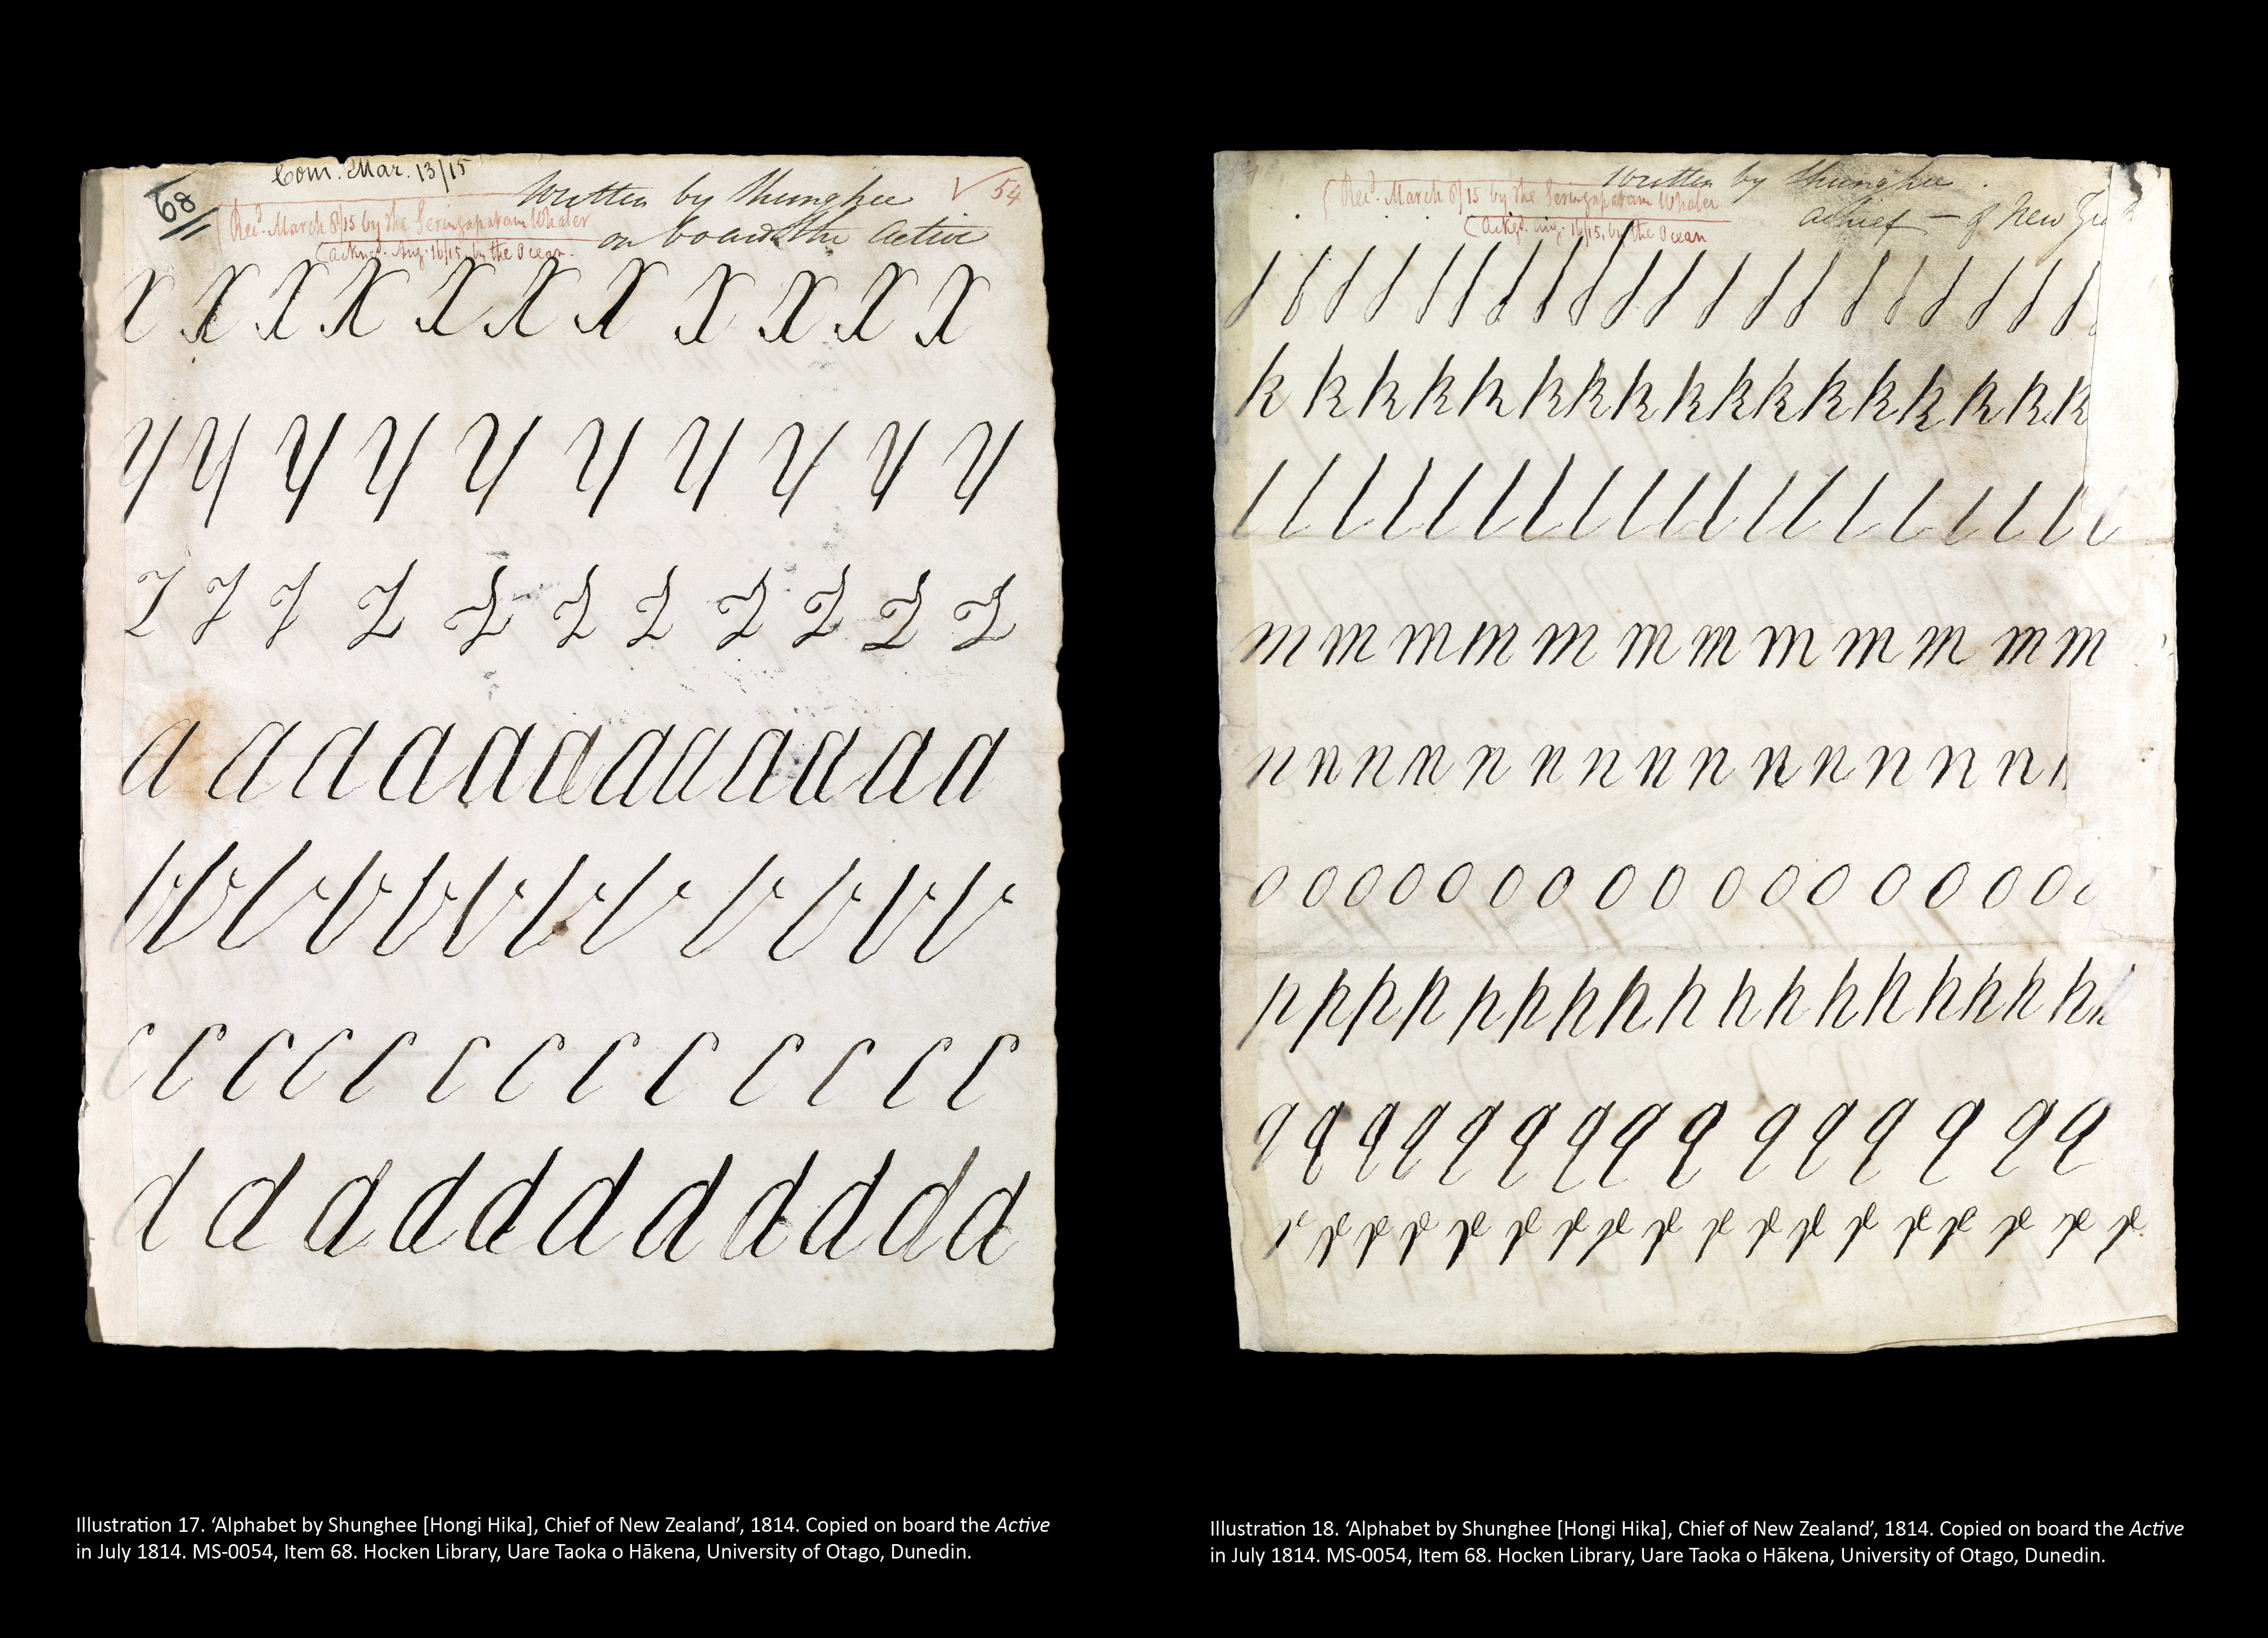 Com. Mar. 13/15
68/1
Written by Shunghee
√ 54
Recd. March 8/15 by the Seringapatam Whaler
on board the Active
(Acknd. Aug. 16/15, by the Ocean.
x x x x x x x x x x x
y y y y y y y y y y
z z z z z z z z z z z
a a a a a a a a a a a a
b b b b b b b b b b b b
c c c c c c c c c c c c c
d d d d d d d d d d d
Illustration 17. ‘Alphabet by Shunghee [Hongi Hika], Chief of New Zealand’, 1814. Copied on board the Active
in July 1814. MS-0054, Item 68. Hocken Library, Uare Taoka o Hākena, University of Otago, Dunedin.
Written by Shunghee
Recd. March 8/15 by the Seringapatam Whaler
a Chief — of New
(Ackgd. Aug. 16/15, by the Ocean
j j j j j j j j j j j j j j j j j j j j
k k k k k k k k k k k k k k k k k
l l l l l l l l l l l l l l l l l l l
m m m m m m m m m m m m
n n n n n n n n n n n n n n
o o o o o o o o o o o o o o o o o o
p p p p p p p p p p p p p p p p p
q q q q q q q q q q q q q q q
r r r r r r r r r r r r r r r r r r
Illustration 18. ‘Alphabet by Shunghee [Hongi Hika], Chief of New Zealand’, 1814. Copied on board the Active
in July 1814. MS-0054, Item 68. Hocken Library, Uare Taoka o Hākena, University of Otago, Dunedin.